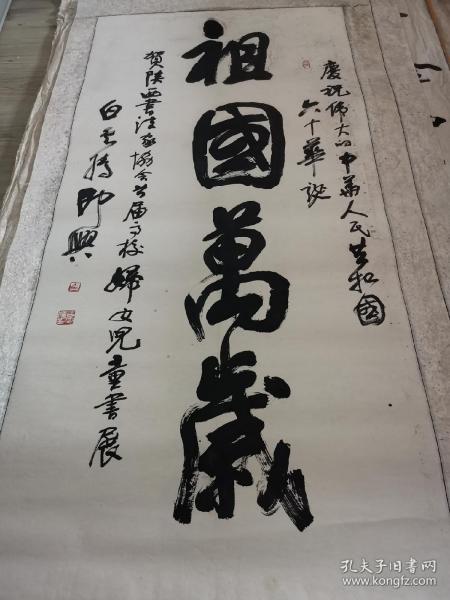 慶祝偉大的中華人民共和國
六十華誕
祖國萬歲
賀陝西書法家協會首届高校婦女兒童書展
白雲騰即興
孔夫子旧书网
www.kongfz.com